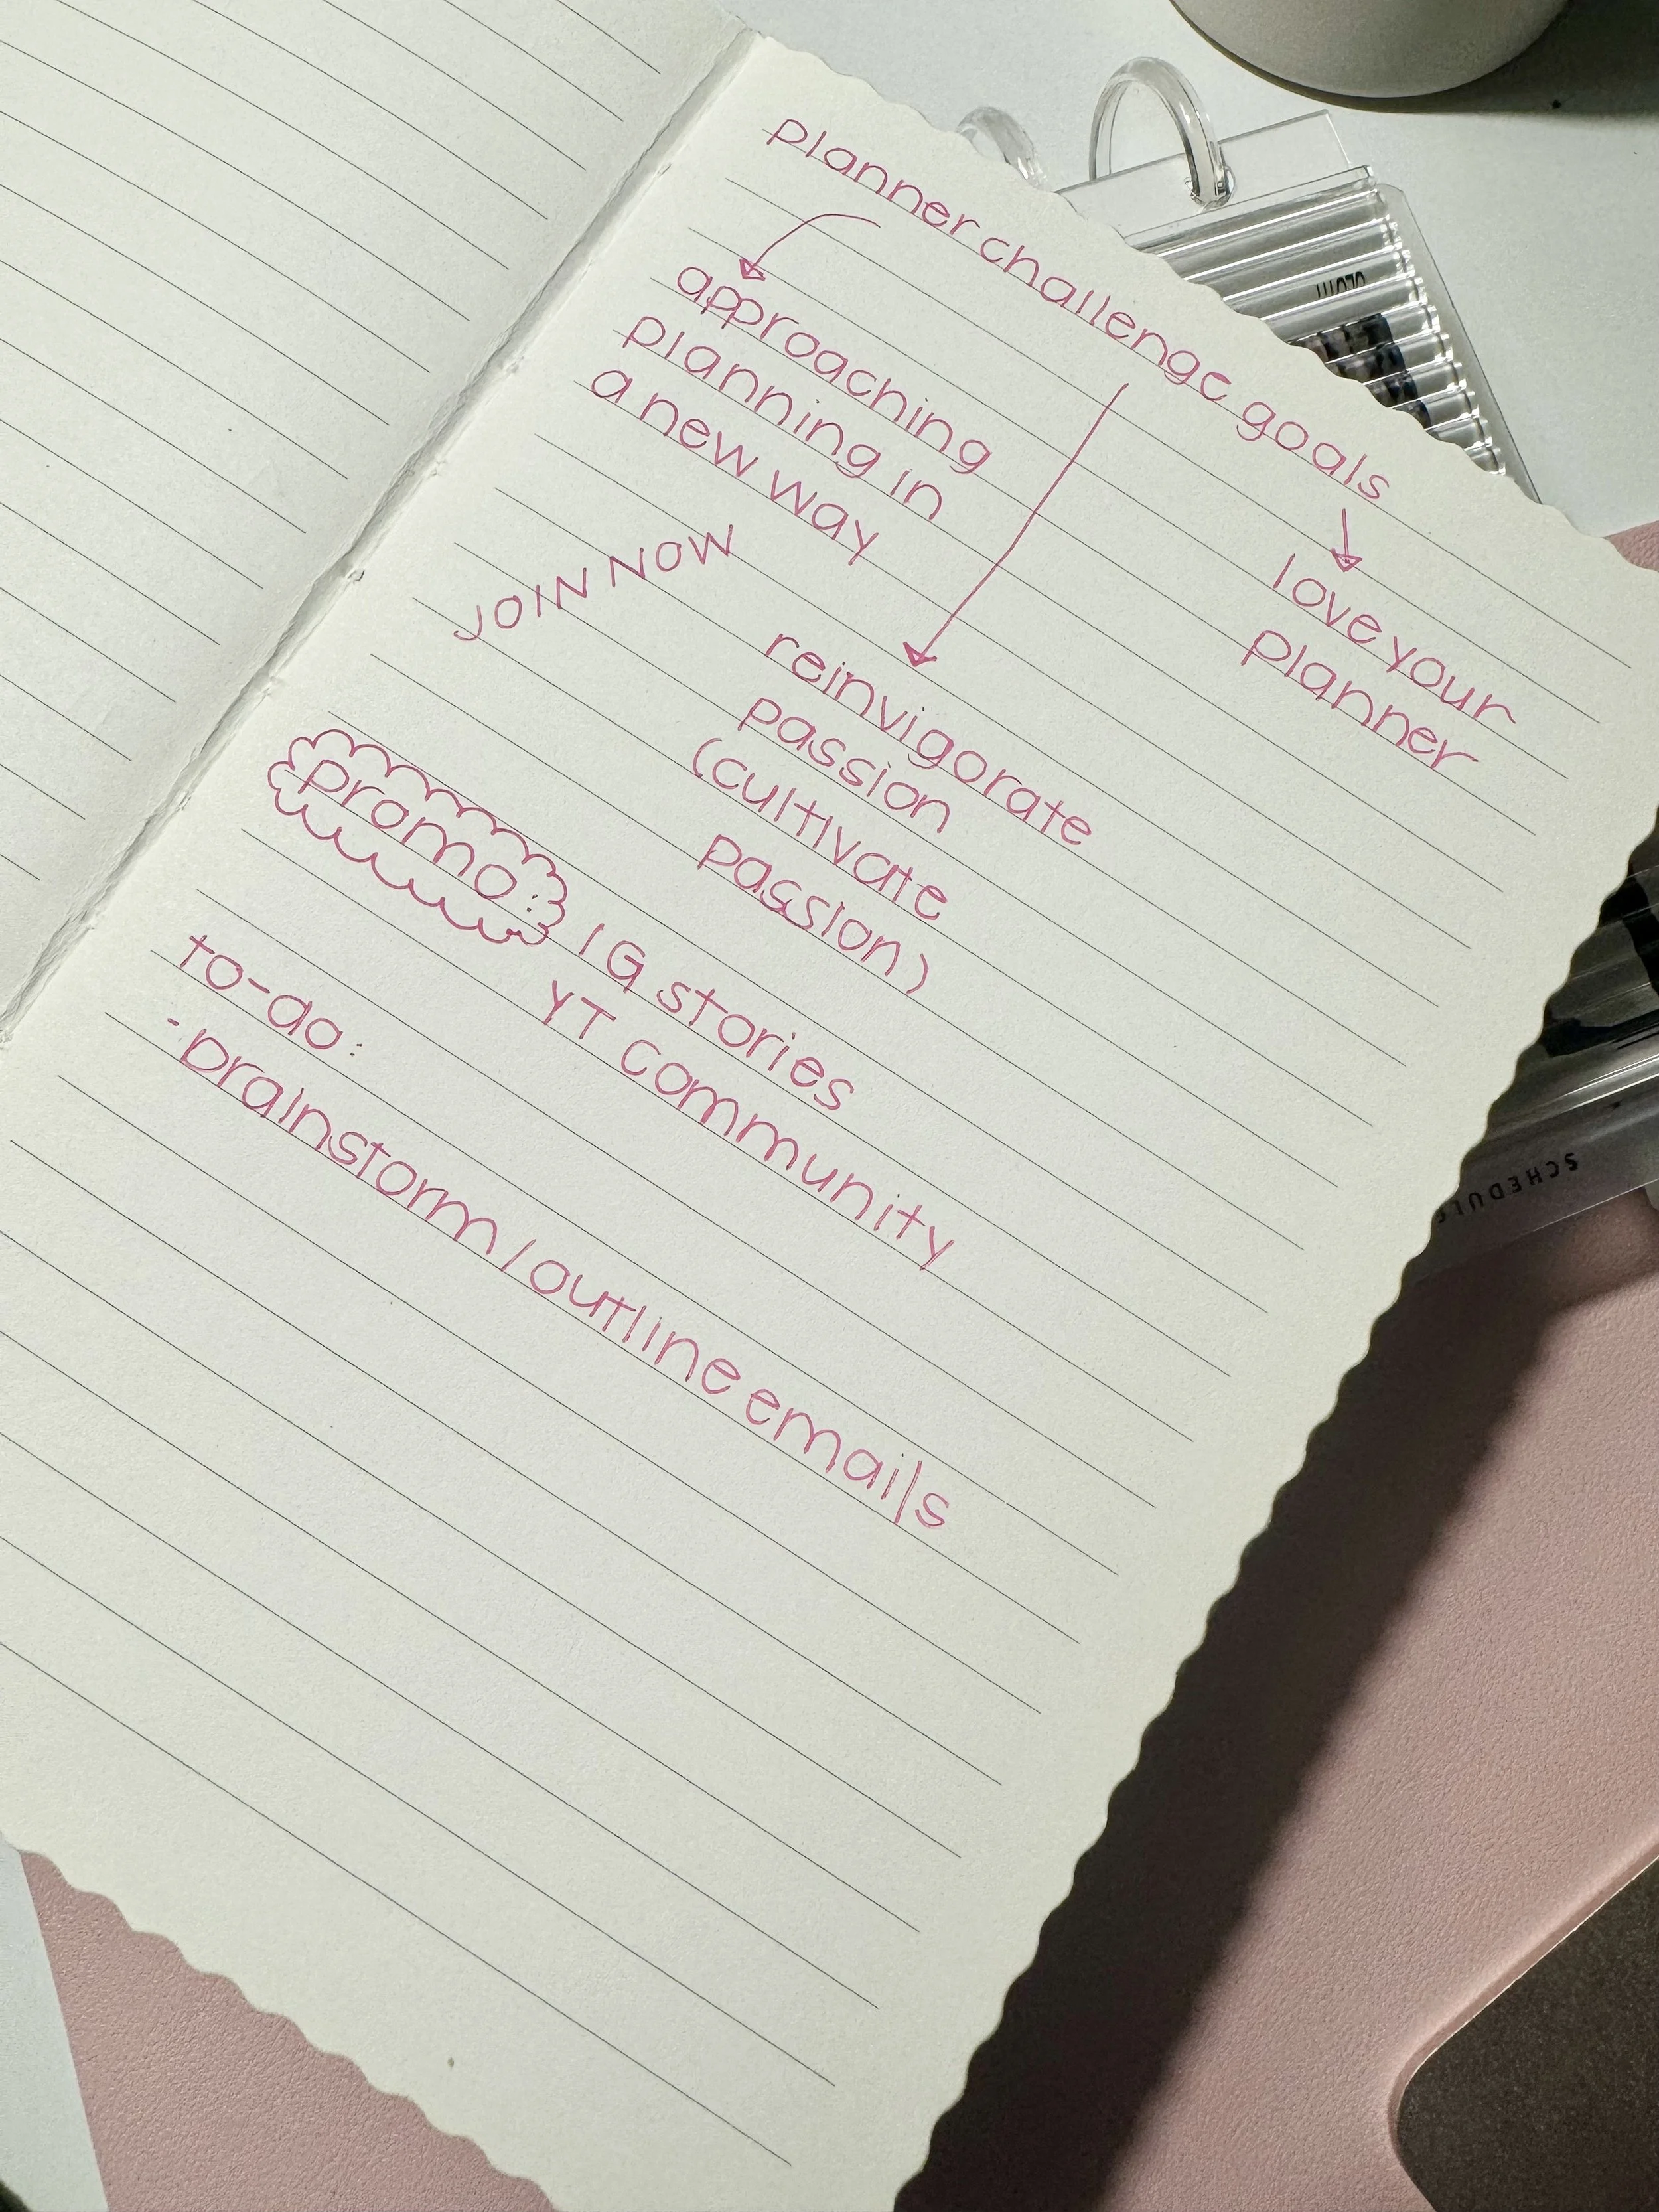 planner challenge goals
approaching
planning in
a new way
JOIN NOW
love your
planner
reinvigorate
passion
(cultivate
passion)
promo:
IG stories
YT community
to-do:
- brainstorm/outline emails
SCHEDULE